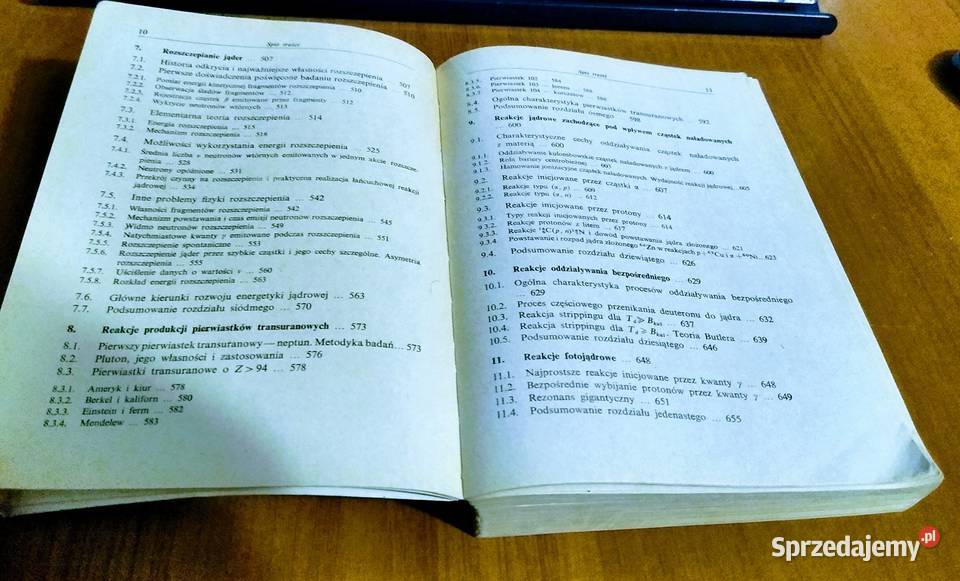 10
Spis treści
7. Rozszczepianie jąder ... 507
7.1. Historia odkrycia i najważniejsze własności rozszczepienia ... 507
7.2. Pierwsze doświadczenia poświęcone badaniu rozszczepienia ... 510
7.2.1. Pomiar energii kinetycznej fragmentów rozszczepienia ... 510
7.2.2. Obserwacja śladów fragmentów ... 512
7.2.3. Rejestracja cząstek β emitowane przez fragmenty ... 512
7.2.4. Wykrycie neutronów wtórnych ... 513
7.3. Elementarna teoria rozszczepienia ... 514
7.3.1. Energia rozszczepienia ... 515
7.3.2. Mechanizm rozszczepienia ... 518
7.4. Możliwości wykorzystania energii rozszczepienia ... 525
7.4.1. Średnia liczba ν neutronów wtórnych emitowanych w jednym akcie rozszcze-
pienia ... 528
7.4.2. Neutrony opóźnione ... 531
7.4.3. Przekrój czynny na rozszczepienie i praktyczna realizacja łańcuchowej reakcji
jądrowej ... 534
7.5. Inne problemy fizyki rozszczepienia ... 542
7.5.1. Własności fragmentów rozszczepienia ... 542
7.5.2. Mechanizm powstawania i czas emisji neutronów rozszczepienia ... 545
7.5.3. Widmo neutronów rozszczepienia ... 549
7.5.4. Natychmiastowe kwanty γ emitowane podczas rozszczepienia ... 551
7.5.5. Rozszczepienie spontaniczne ... 553
7.5.6. Rozszczepienie jąder przez szybkie cząstki i jego cechy szczególne. Asymetria
rozszczepienia ... 555
7.5.7. Uściślenie danych o wartości ν ... 560
7.5.8. Rozkład energii rozszczepienia ... 563
7.6. Główne kierunki rozwoju energetyki jądrowej ... 563
7.7. Podsumowanie rozdziału siódmego ... 570
8. Reakcje produkcji pierwiastków transuranowych ... 573
8.1. Pierwszy pierwiastek transuranowy — neptun. Metodyka badań... 573
8.2. Pluton, jego własności i zastosowania ... 576
8.3. Pierwiastki transuranowe o Z > 94 ... 578
8.3.1. Ameryk i kiur ... 578
8.3.2. Berkel i kaliforn ... 580
8.3.3. Einstein i ferm ... 582
8.3.4. Mendelew ... 583
Spis treści
11
8.3.5. Pierwiastek 102 ... 584
8.3.6. Pierwiastek 103 — lorens ... 586
8.3.7. Pierwiastek 104 — kurczatow ... 586
8.4. Ogólna charakterystyka pierwiastków transuranowych ... 592
8.5. Podsumowanie rozdziału ósmego ... 598
9. Reakcje jądrowe zachodzące pod wpływem cząstek naładowanych
... 600
9.1. Charakterystyczne cechy oddziaływania cząstek naładowanych
z materią ... 600
9.1.1. Oddziaływanie kulombowskie cząstek naładowanych z jądrem ... 600
9.1.2. Rola bariery centrobieżnej ... 603
9.1.3. Hamowanie jonizacyjne cząstek naładowanych. Wydajność reakcji jądrowej...605
9.2. Reakcje inicjowane przez cząstki α ... 607
9.2.1. Reakcje typu (α, p) ... 609
9.2.2. Reakcje typu (α, n) ... 612
9.3. Reakcje inicjowane przez protony ... 614
9.3.1. Typy reakcji inicjowanych przez protony ... 614
9.3.2. Reakcje protonów z litem ... 617
9.3.3. Reakcje ¹⁴C(p, n)¹⁴N i dowód powstawania jądra złożonego ... 621
9.3.4. Powstawanie i rozpad jądra złożonego ⁶⁴Zn w reakcjach p+⁶³Cu i α+⁶⁰Ni...623
9.4. Podsumowanie rozdziału dziewiątego ... 626
10. Reakcje oddziaływania bezpośredniego ... 629
10.1. Ogólna charakterystyka procesów oddziaływania bezpośredniego
... 629
10.2. Proces częściowego przenikania deuteronu do jądra ... 632
10.3. Reakcja strippingu dla T_d ≫ B_kul ... 637
10.4. Reakcja strippingu dla T_d ≥ B_kul. Teoria Butlera ... 639
10.5. Podsumowanie rozdziału dziesiątego ... 646
11. Reakcje fotojądrowe ... 648
11.1. Najprostsze reakcje inicjowane przez kwanty γ ... 648
11.2. Bezpośrednie wybijanie protonów przez kwanty γ ... 649
11.3. Rezonans gigantyczny ... 651
11.4. Podsumowanie rozdziału jedenastego ... 655
Sprzedajemy.pl